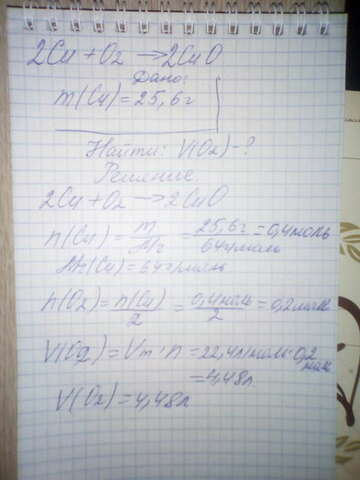 2Cu + O2 → 2CuO
Дано:
m(Cu) = 25,6 г
Найти: V(O2) - ?
Решение
2Cu + O2 → 2CuO
n(Cu) = m/Mr = 25,6 г/64 г/моль = 0,4 моль
Mr(Cu) = 64 г/моль
n(O2) = n(Cu)/2 = 0,4 моль/2 = 0,2 моль
V(O2) = Vm · n = 22,4 л/моль · 0,2 моль
= 4,48 л
V(O2) = 4,48 л